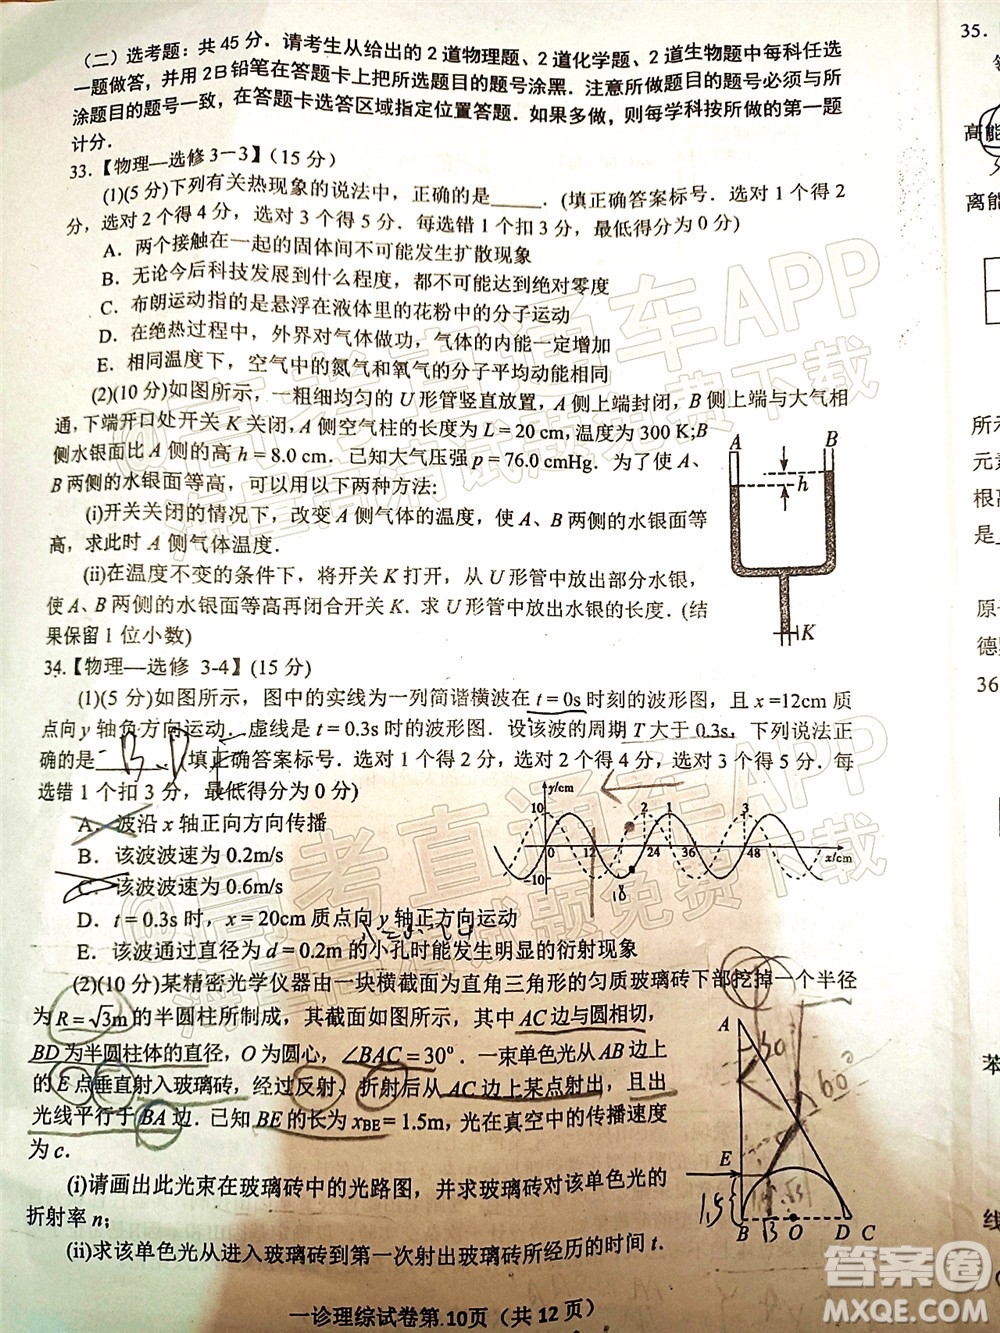 （二）选考题：共 45 分．请考生从给出的 2 道物理题、2 道化学题、2 道生物题中每科任选
一题做答，并用 2B 铅笔在答题卡上把所选题目的题号涂黑．注意所做题目的题号必须与所
涂题目的题号一致，在答题卡选答区域指定位置答题．如果多做，则每学科按所做的第一题
计分．
33.【物理—选修 3－3】(15 分)
(1)(5 分)下列有关热现象的说法中，正确的是_____．(填正确答案标号．选对 1 个得 2
分，选对 2 个得 4 分，选对 3 个得 5 分．每选错 1 个扣 3 分，最低得分为 0 分)
A．两个接触在一起的固体间不可能发生扩散现象
B．无论今后科技发展到什么程度，都不可能达到绝对零度
C．布朗运动指的是悬浮在液体里的花粉中的分子运动
D．在绝热过程中，外界对气体做功，气体的内能一定增加
E．相同温度下，空气中的氮气和氧气的分子平均动能相同
(2)(10 分)如图所示，一粗细均匀的 U 形管竖直放置，A 侧上端封闭，B 侧上端与大气相
通，下端开口处开关 K 关闭，A 侧空气柱的长度为 L = 20 cm，温度为 300 K；B
侧水银面比 A 侧的高 h = 8.0 cm．已知大气压强 p = 76.0 cmHg．为了使 A、
B 两侧的水银面等高，可以用以下两种方法：
(i)开关关闭的情况下，改变 A 侧气体的温度，使 A、B 两侧的水银面等
高，求此时 A 侧气体温度．
(ii)在温度不变的条件下，将开关 K 打开，从 U 形管中放出部分水银，
使 A、B 两侧的水银面等高再闭合开关 K．求 U 形管中放出水银的长度．(结
果保留 1 位小数)
A
B
h
K
34.【物理—选修 3-4】(15 分)
(1)(5 分)如图所示，图中的实线为一列简谐横波在 t = 0s 时刻的波形图，且 x =12cm 质
点向 y 轴负方向运动．虚线是 t = 0.3s 时的波形图．设该波的周期 T 大于 0.3s．下列说法正
确的是 B.D 填正确答案标号．选对 1 个得 2 分，选对 2 个得 4 分，选对 3 个得 5 分．每
选错 1 个扣 3 分，最低得分为 0 分)
A．波沿 x 轴正向方向传播
B．该波波速为 0.2m/s
C．该波波速为 0.6m/s
D．t = 0.3s 时，x = 20cm 质点向 y 轴正方向运动
E．该波通过直径为 d = 0.2m 的小孔时能发生明显的衍射现象
y/cm
10
2
1
3
0
12
24
36
48
x/cm
-10
18
(2)(10 分)某精密光学仪器由一块横截面为直角三角形的匀质玻璃砖下部挖掉一个半径
为 R = √3m 的半圆柱所制成，其截面如图所示，其中 AC 边与圆相切，
BD 为半圆柱体的直径，O 为圆心，∠BAC = 30°．一束单色光从 AB 边
的 E 点垂直射入玻璃砖，经过反射、折射后从 AC 边上某点射出，且出
光线平行于 BA 边．已知 BE 的长为 xBE = 1.5m，光在真空中的传播速度
为 c．
(i)请画出此光束在玻璃砖中的光路图，并求玻璃砖对该单色光的
折射率 n；
(ii)求该单色光从进入玻璃砖到第一次射出玻璃砖所经历的时间 t．
A
30
60°
E
1.5
B
√3
O
D
C
一诊理综试卷第 10页（共 12 页）
35.
高能
离能
所示
元素
根高
是
原子
德
36
苯
线
@高考直通车APP
海量高清试题免费下载
高考直通车APP
海量高清试题免费下载
答案圈
MXQE.COM